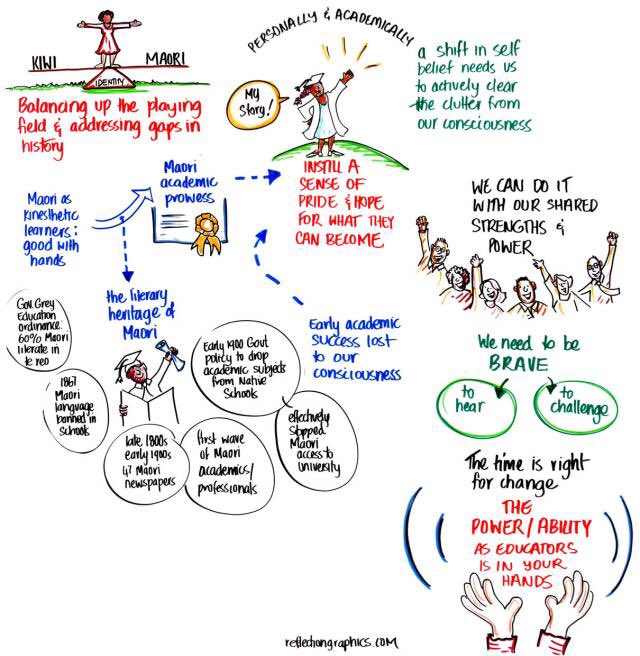 KIWI
MAORI
IDENTITY
Balancing up the playing
field & addressing gaps in
history
PERSONALLY & ACADEMICALLY
My
Story!
INSTILL A
SENSE OF
PRIDE & HOPE
FOR WHAT THEY
CAN BECOME
a shift in self
belief needs us
to actively clear
the clutter from
our consciousness
Maori as
kinesthetic
learners:
good with
hands
Maori
academic
prowess
the literary
heritage of
Maori
Early academic
success lost
to our
consciousness
Gov. Grey
Education
ordinance:
60% Maori
literate in
te reo
1867
Maori
language
banned in
schools
late 1800s
early 1900s
47 Maori
newspapers
first wave
of Maori
academics/
professionals
Early 1900 Govt
policy to drop
academic subjects
from Native
Schools
effectively
stopped
Maori
access to
university
WE CAN DO IT
WITH OUR SHARED
STRENGTHS &
POWER
We need to be
BRAVE
to
hear
to
challenge
The time is right
for change
THE
POWER/ABILITY
AS EDUCATORS
IS IN YOUR
HANDS
reflectiongraphics.com